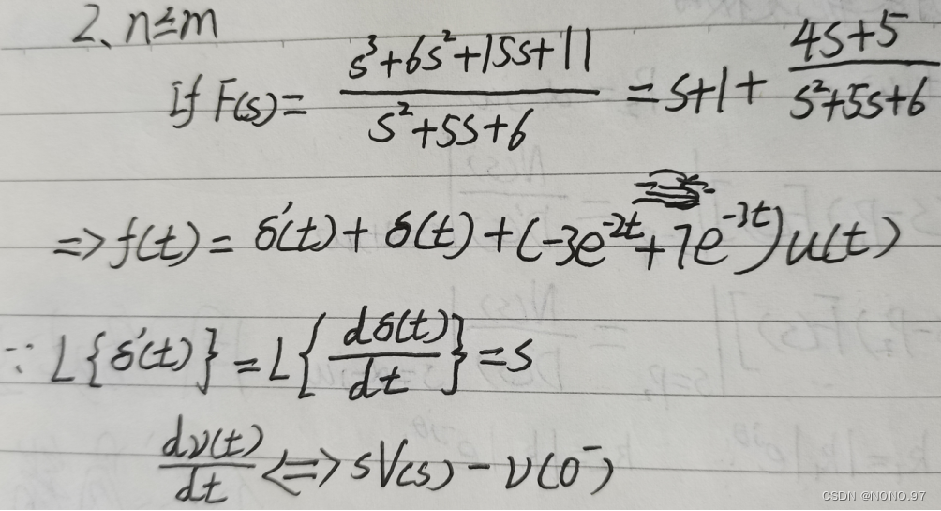 2、n≤m
If F(s)= (s³+6s²+15s+11)/(s²+5s+6) = s+1+ (4s+5)/(s²+5s+6)
=> f(t)= δ'(t)+ δ(t)+(-3e^{-2t}+7e^{-3t})u(t)
∵ L{δ'(t)}=L{dδ(t)/dt}=s
dv(t)/dt <=> sV(s)-v(0⁻)
CSDN @NONO.97